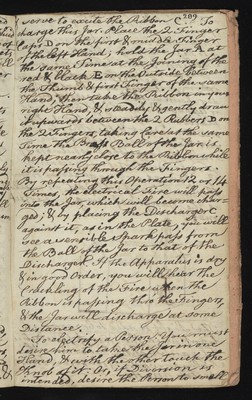 209
serve to excite the Ribbon C. To
charge this Jar Place the 2 Finger
Caps D on the first & middle Finger
of the left Hand, hold the Jar A at
the same Time at the Joining of the
red & black E on the Outside between
the Thumb & first Finger of the same
Hand, then take the Ribbon in your
right Hand & steadily & gently draw
it upwards between the 2 Rubbers D on
the 2 Fingers, taking Care at the same
Time the Brass Ball of the Jar is
kept nearly close to the Ribbon while
it is passing through the Fingers.
By repeating this Operation 12 or 14
Times, the electrical Fire will pass
into the Jar, which will become char-
ged; & by placing the Discharger C
against it, as in the Plate, you will
see a sensible Spark pass from
the Ball of the Jar to that of the
Discharger. If the Apparatus is dry
& in good Order, you will hear the
Crackling of the Fire when the
Ribbon is passing thro' the Fingers,
& the Jar will discharge at some
Distance.
To electrify a Person you must
desire him to take the Jar in one
Hand, & with the other touch the
Knob of it: Or, if Diversion is
intended, desire the Person to smell